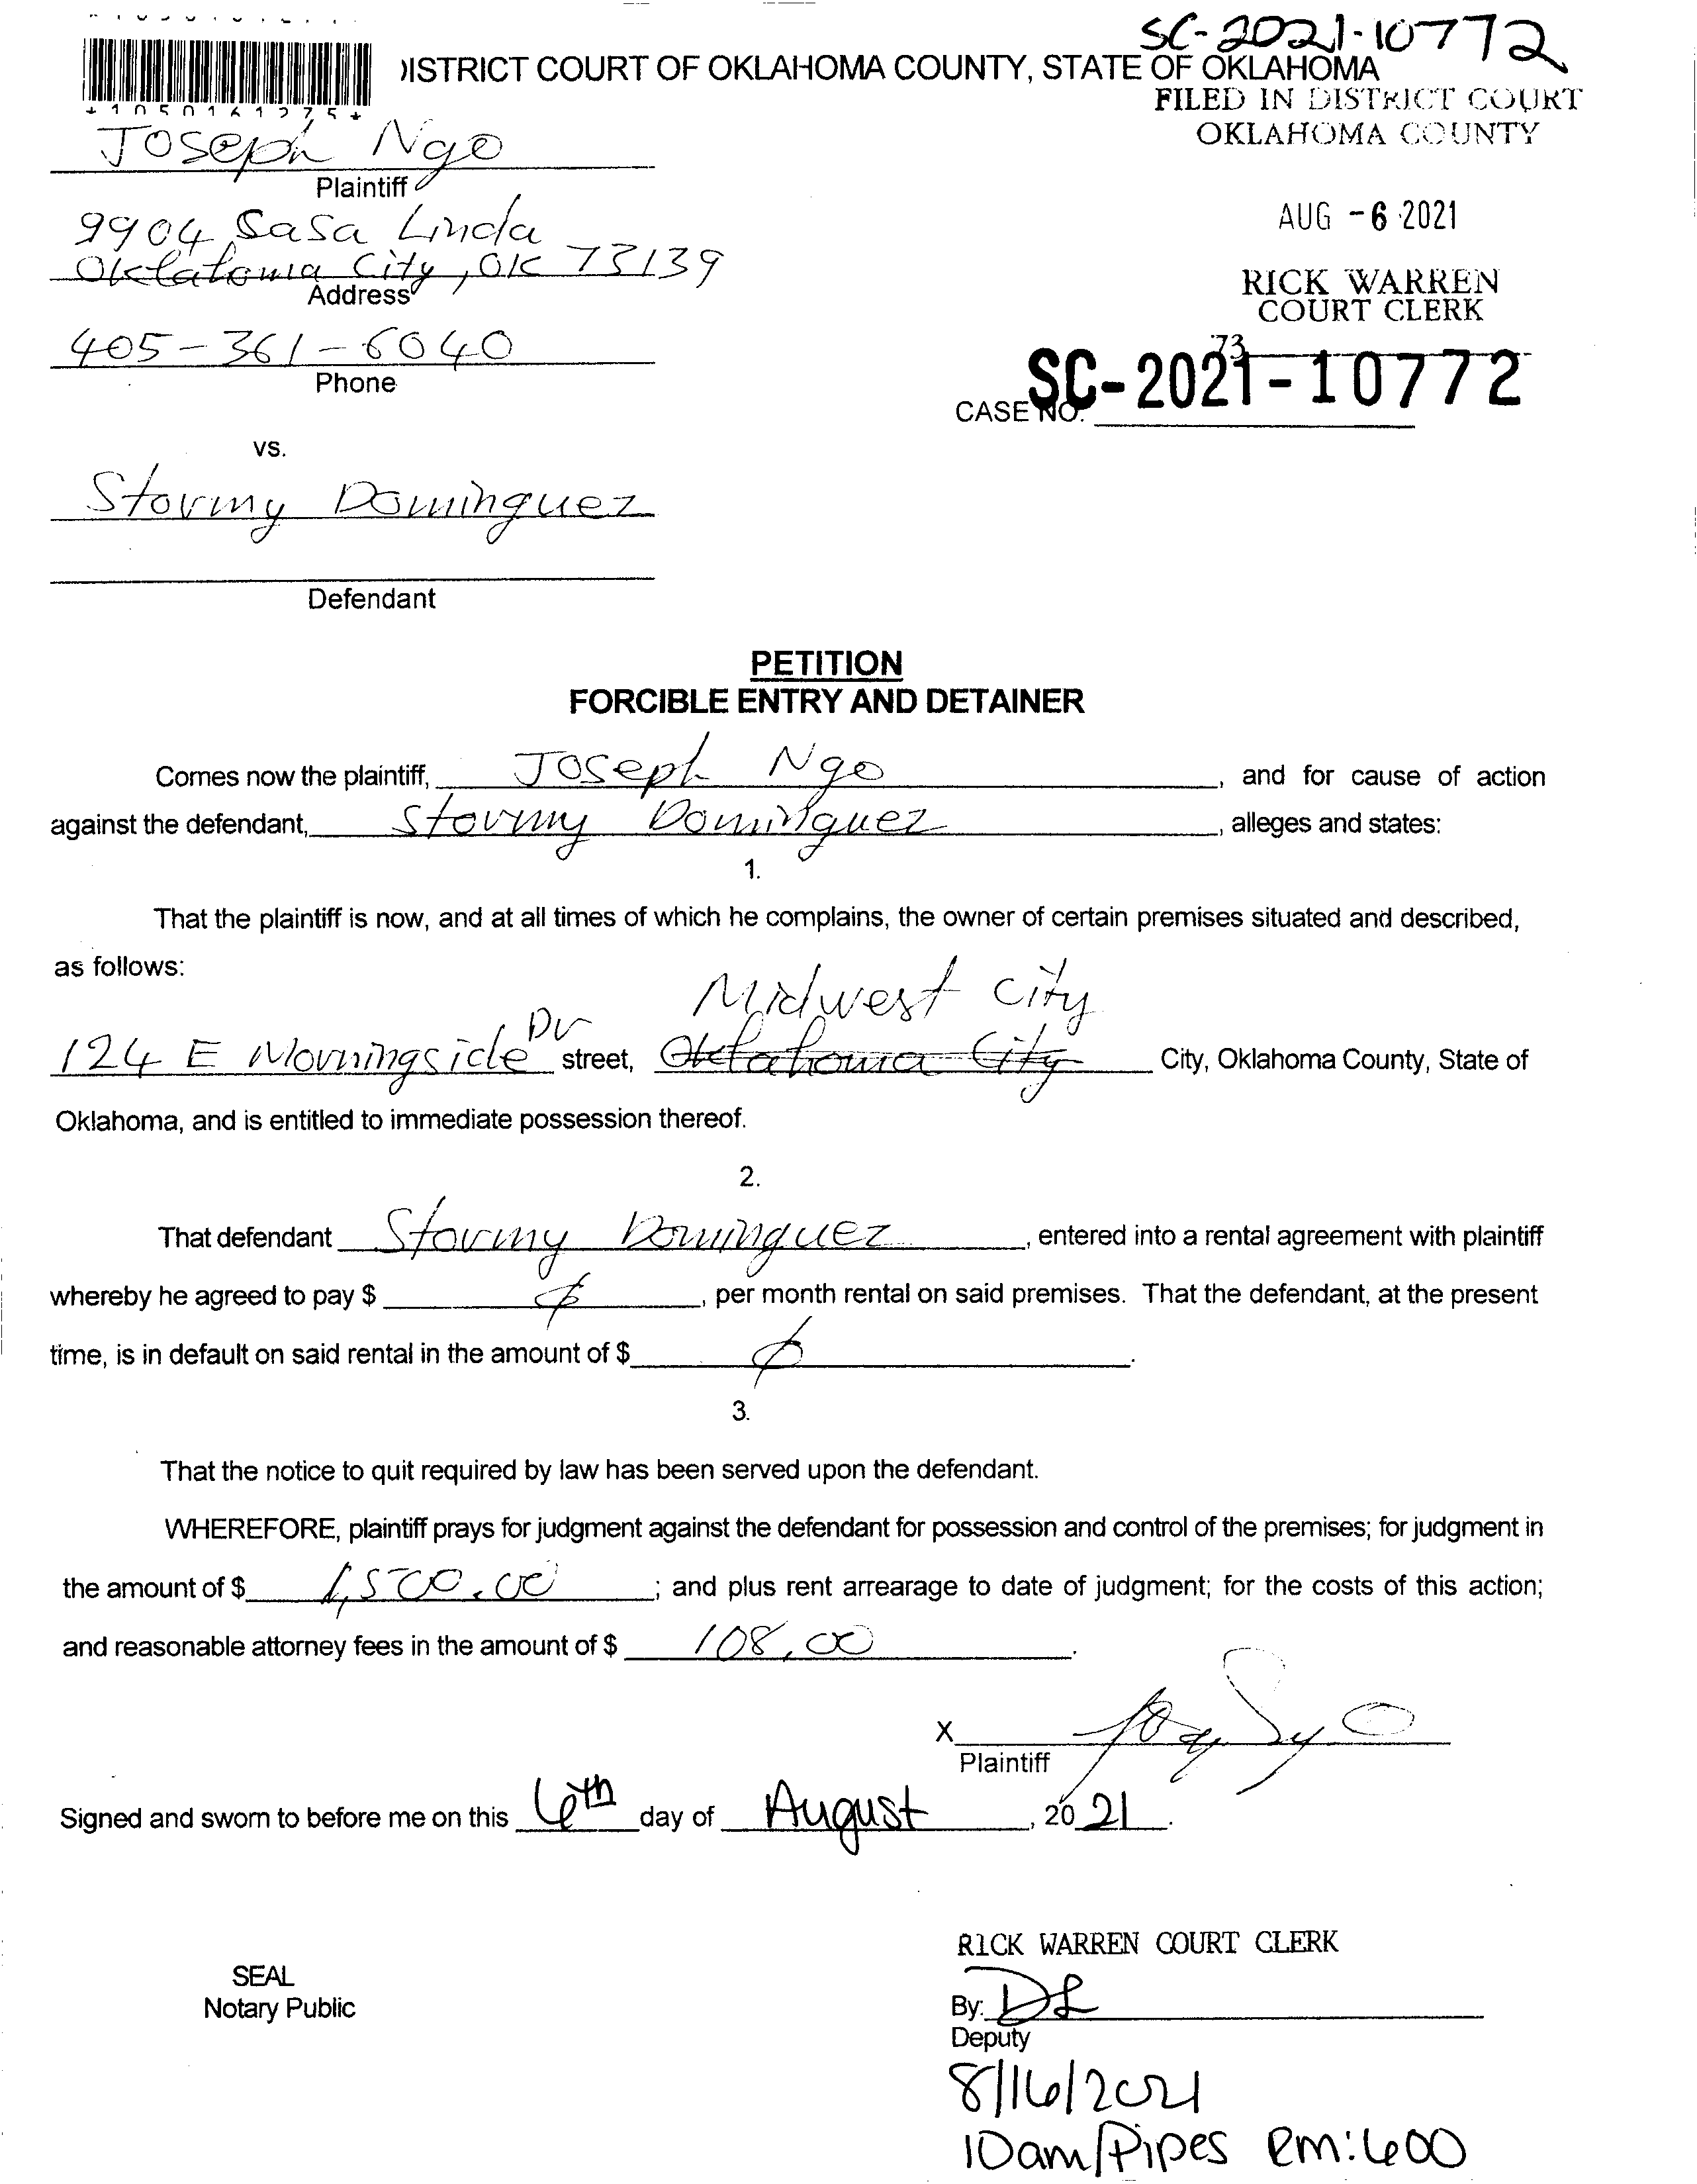 SC-2021-10772
DISTRICT COURT OF OKLAHOMA COUNTY, STATE OF OKLAHOMA
*1050161275*
FILED IN DISTRICT COURT
OKLAHOMA COUNTY
Joseph Ngo
Plaintiff
AUG -6 2021
9904 Sasa Linda
Oklahoma City, OK 73139
Address
RICK WARREN
COURT CLERK
73
405-361-6040
Phone
CASE NO. SC-2021-10772
vs.
Stormy Dominguez
Defendant
PETITION
FORCIBLE ENTRY AND DETAINER
Comes now the plaintiff, Joseph Ngo, and for cause of action
against the defendant, Stormy Dominguez, alleges and states:
1.
That the plaintiff is now, and at all times of which he complains, the owner of certain premises situated and described,
as follows:
Midwest City
124 E Morningside Dr street, Oklahoma City City, Oklahoma County, State of
Oklahoma, and is entitled to immediate possession thereof.
2.
That defendant Stormy Dominguez, entered into a rental agreement with plaintiff
whereby he agreed to pay $ ∅, per month rental on said premises. That the defendant, at the present
time, is in default on said rental in the amount of $ ∅.
3.
That the notice to quit required by law has been served upon the defendant.
WHEREFORE, plaintiff prays for judgment against the defendant for possession and control of the premises; for judgment in
the amount of $ 1,500.00; and plus rent arrearage to date of judgment; for the costs of this action;
and reasonable attorney fees in the amount of $ 108.00.
X
Plaintiff
Signed and sworn to before me on this 6th day of August, 2021.
RICK WARREN COURT CLERK
SEAL
Notary Public
By: DL
Deputy
8/16/2021
10am/Pipes rm:600